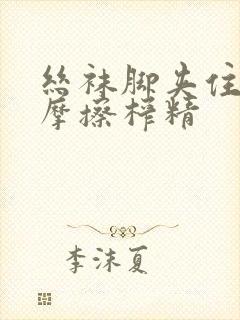 丝袜脚夹住
摩擦榨精
李沫夏